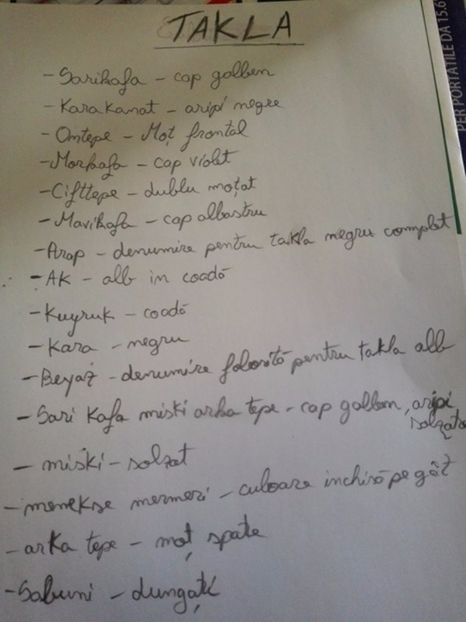 TAKLA
PER PORTATILE DA 15.6
- Sarikafa - cap galben
- Karakanat - aripi negre
- Ontepe - Moț frontal
- Morkafa - cap violet
- Cifttepe - dublu moțat
- Mavikafa - cap albastru
- Arap - denumire pentru takla negru complet
- AK - alb in coadă
- Kuyruk - coadă
- Kara - negru
- Beyaz - denumire folosită pentru takla alb
- Sari Kafa miski arka tepe - cap galben, aripi
solzate
- miski - solzat
- menekse mermeri - culoare inchisă pe gât
- arka tepe - moț spate
- Sabuni - dungați